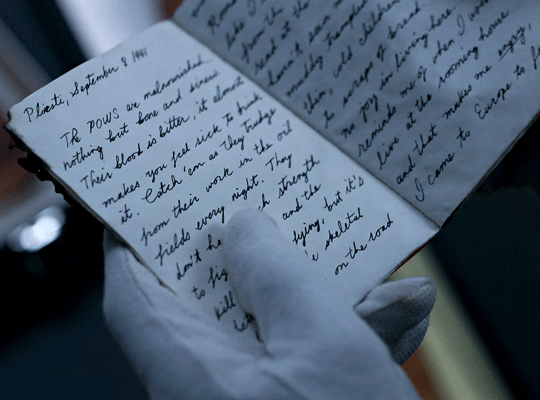 September 8 1941
The POWS are malnourished,
nothing but bone and sinew.
Their blood is bitter, it almost
makes you feel sick to drink
it. Catch 'em as they trudge
from their work in the oil
fields every night. They
don't ha ch strength
to fig and the
kill fying, but it's
skeletal
on the road
like I
from the
read at the
haven't seen
muddy
thin, cold children
to scraps of bread.
no joy in living here.
remind me of when I
live at the rooming house
and that makes me angry,
I came to Europe to